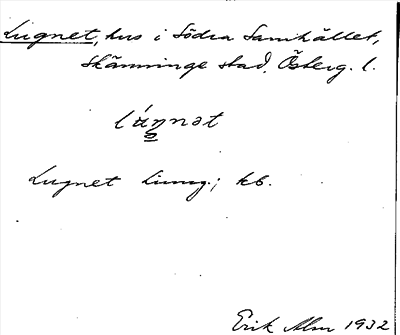 Lugnet, hus i Södra Samhället,
Skänninge stad, Österg. l.
lúŋnət
Lugnet Ljung.; kb.
Erik Alm 1932